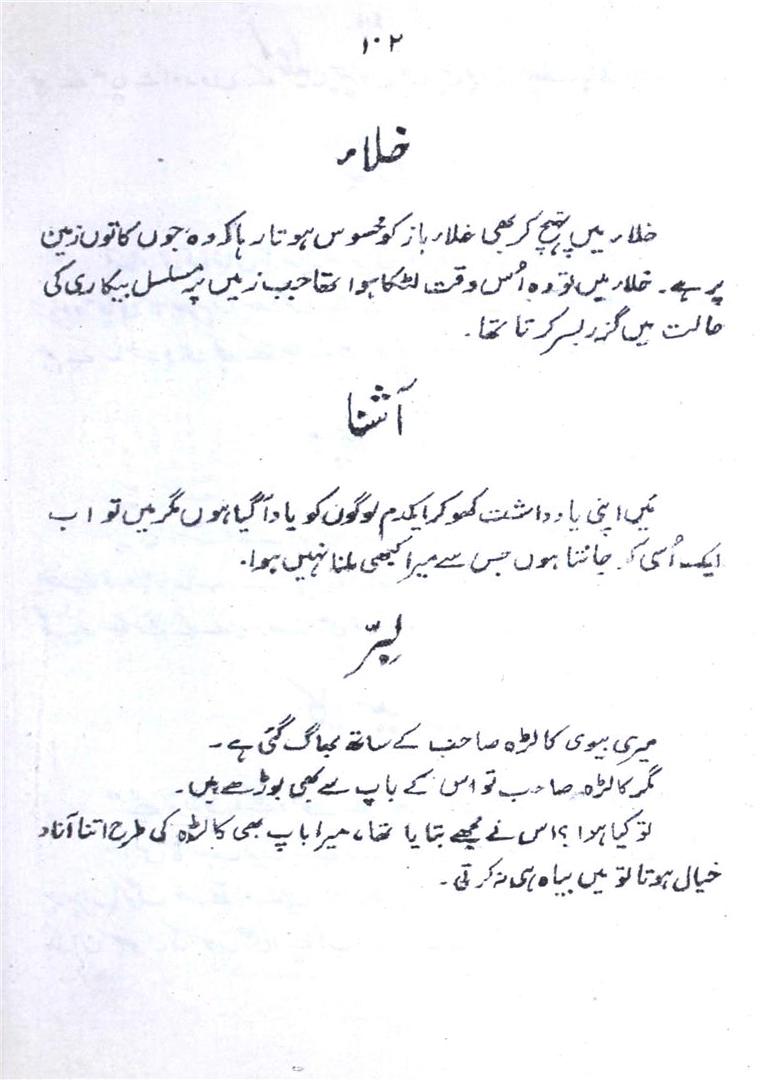 ۱۰۲
خلاء
خلاء میں پہنچ کر بھی خلاء باز کو محسوس ہوتا رہا کہ وہ جوں کا توں زمین
پر ہے۔ خلاء میں تو وہ اُس وقت لٹکا ہوا تھا جب زمین پر مسلسل بیکاری کی
حالت میں گزر بسر کرتا تھا۔
آشنا
میں اپنی یادداشت کھو کر ایکدم لوگوں کو یاد آ گیا ہوں مگر میں تو اب
ایک اُسی کو جانتا ہوں جس سے میرا کبھی ملنا نہیں ہوا۔
لبرّ
میری بیوی کالڑہ صاحب کے ساتھ بھاگ گئی ہے۔
مگر کالڑہ صاحب تو اس کے باپ سے بھی بوڑھے ہیں۔
تو کیا ہوا؟ اس نے مجھے بتایا تھا، میرا باپ بھی کالڑہ کی طرح اتنا آزاد
خیال ہوتا تو میں بیاہ ہی نہ کرتی۔